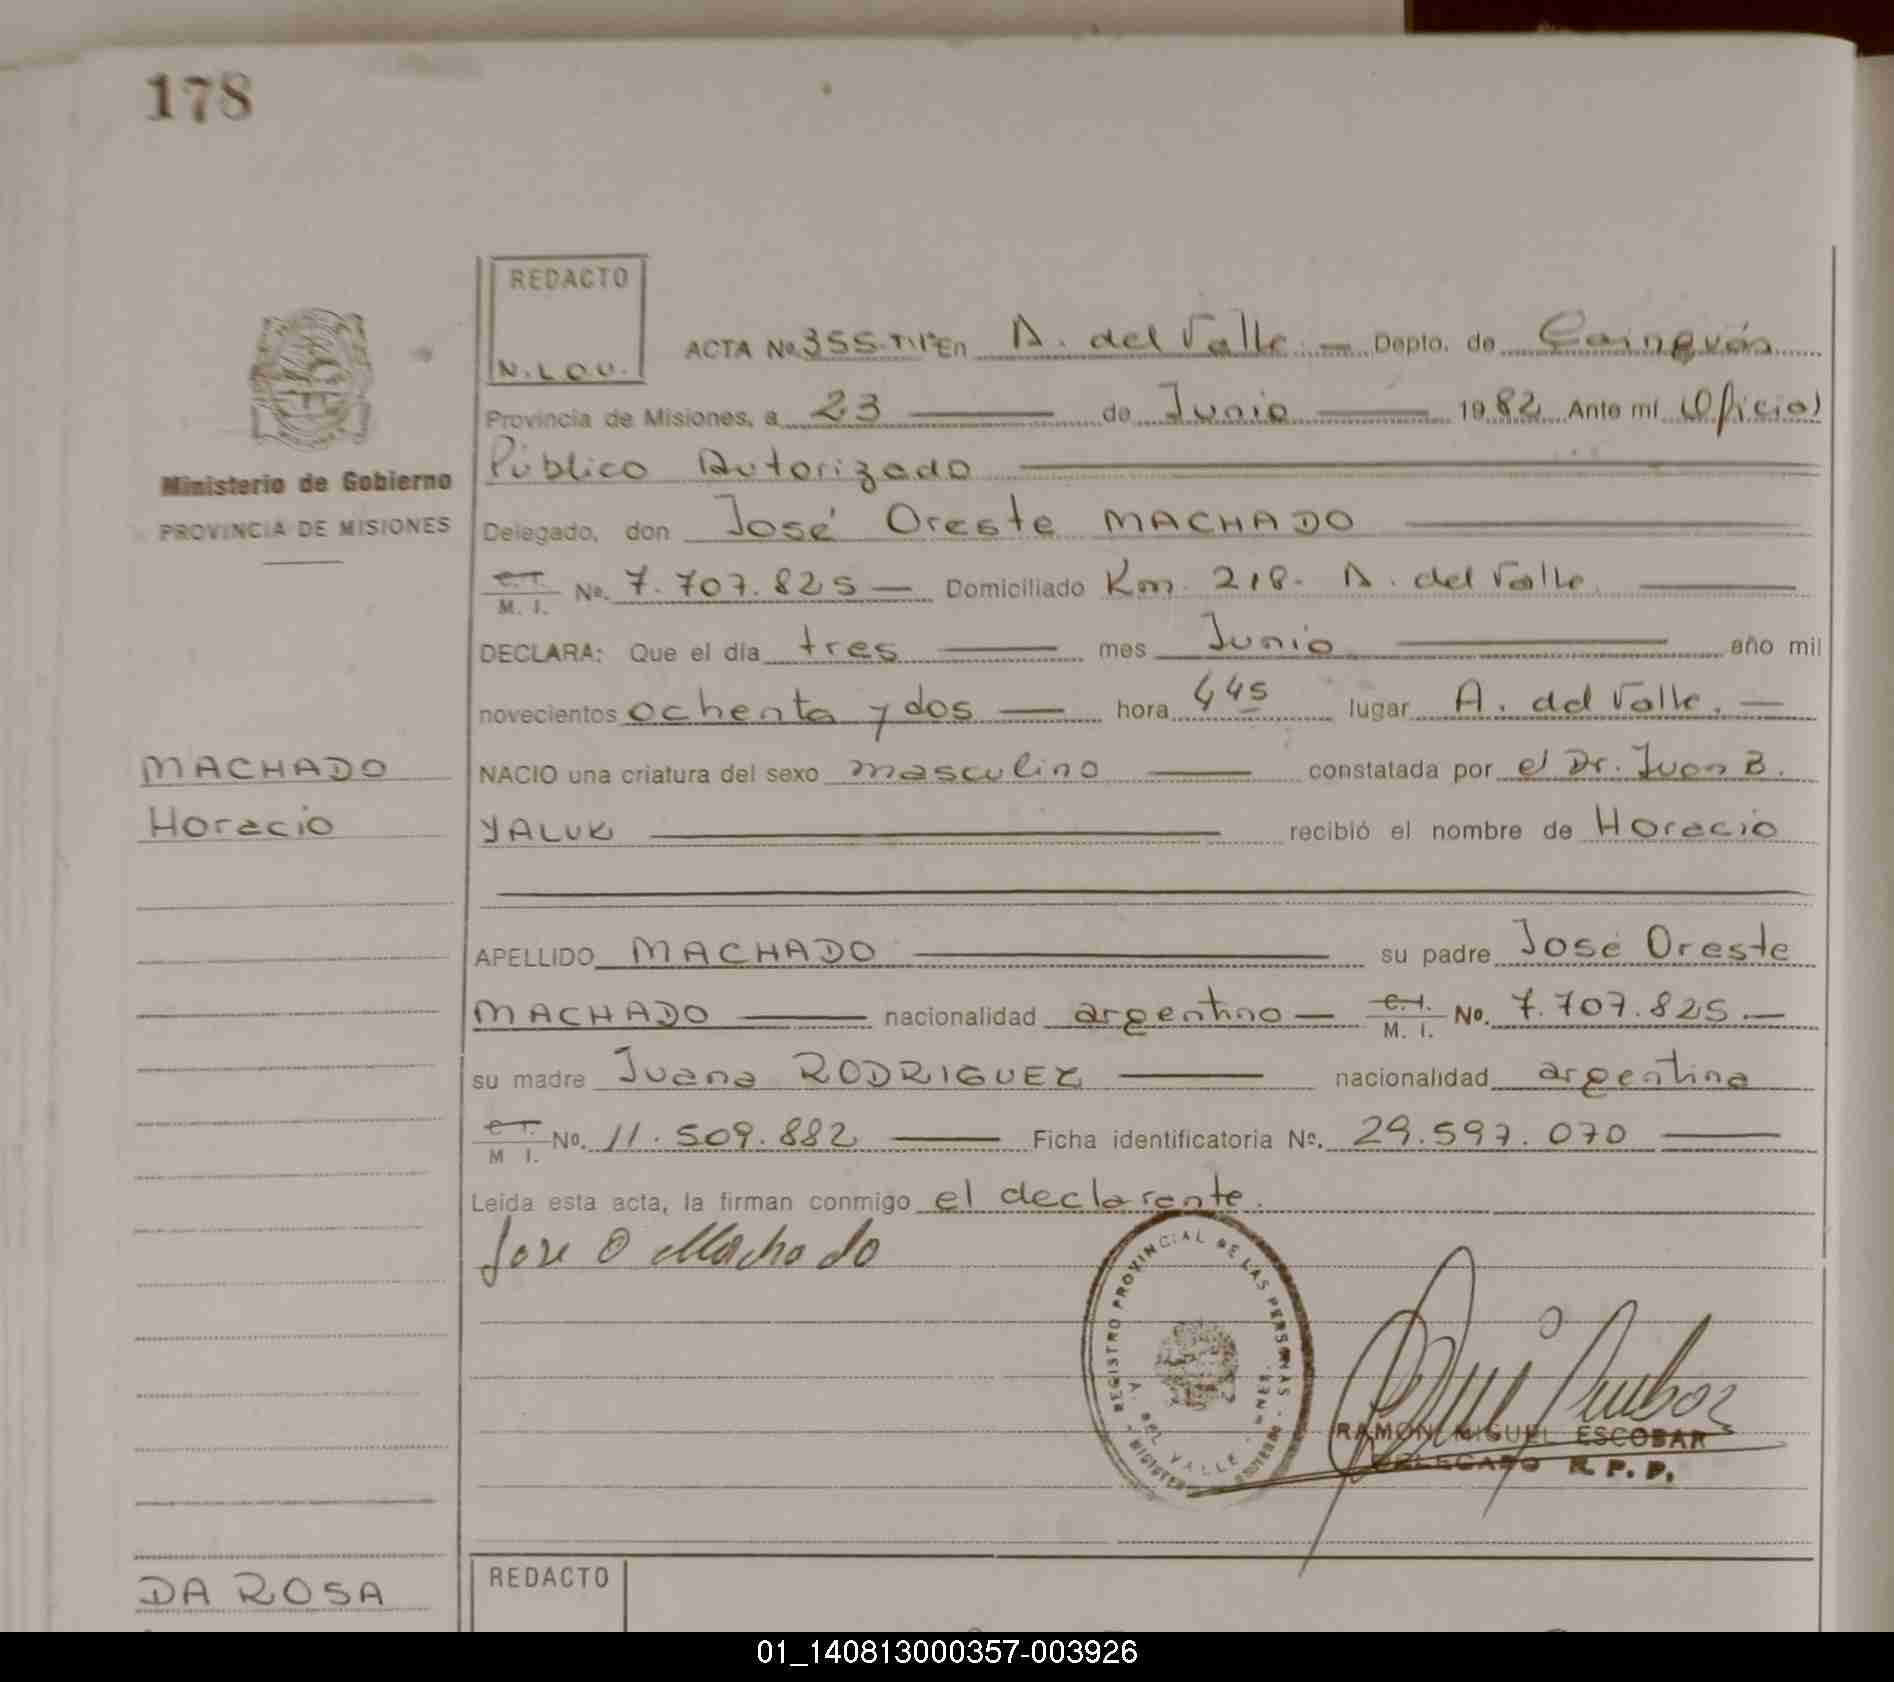 178
REDACTO
N.L.O.U.
ACTA No 355-T.1º En A. del Valle.- Depto. de Cainguás
Provincia de Misiones, a 23 de Junio 1982 Ante mi Oficial
Público Autorizado
Ministerio de Gobierno
PROVINCIA DE MISIONES
Delegado, don José Oreste MACHADO
C.I. M. I. No. 7.707.825 — Domiciliado Km. 218- A. del Valle.
DECLARA: Que el día tres mes Junio año mil
novecientos ochenta y dos — hora 4 45 lugar A. del Valle.—
MACHADO
Horacio
NACIO una criatura del sexo masculino constatada por el Dr. Juan B.
YALUK recibió el nombre de Horacio
APELLIDO MACHADO su padre José Oreste
MACHADO nacionalidad argentino — C.I. M. I. No. 7.707.825.—
su madre Juana RODRIGUEZ nacionalidad argentina
C.I. M I. No. 11.509.882 Ficha identificatoria No. 29.597.070
Leída esta acta, la firman conmigo el declarante.
Jose O Machado
REGISTRO PROVINCIAL DE LAS PERSONAS
A. DEL VALLE
RAMON MIGUEL ESCOBAR
DELEGADO R. P. P.
DA ROSA
REDACTO
01_140813000357-003926